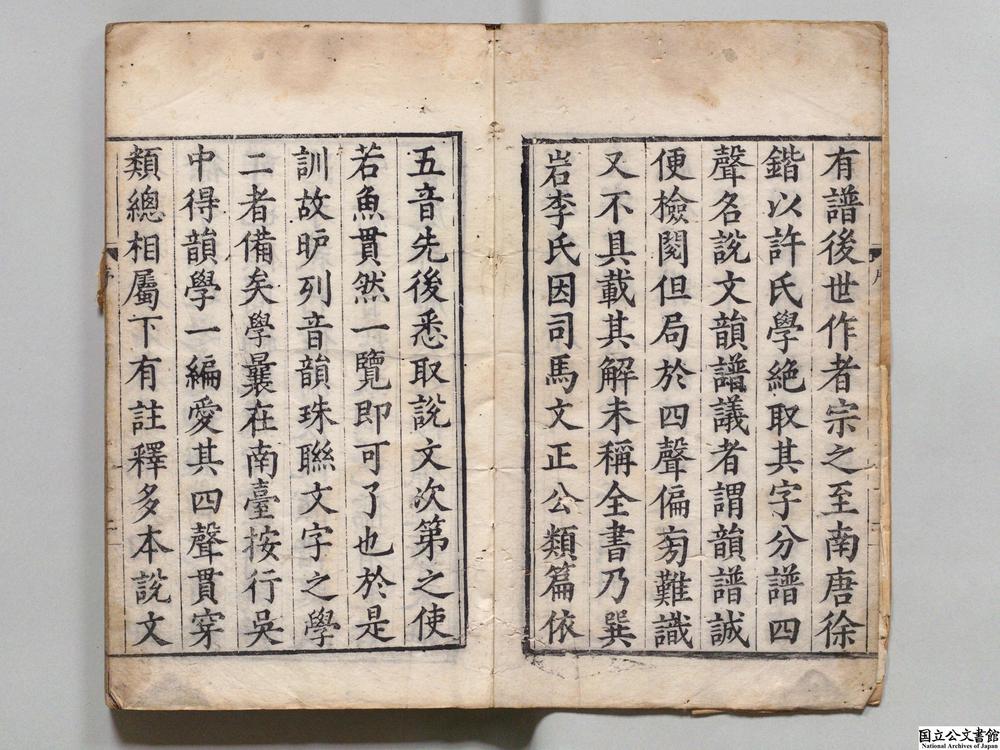 有譜後世作者宗之至南唐徐
鍇以許氏學絶取其字分譜四
聲名說文韻譜議者謂韻譜誠
便檢閱但局於四聲偏旁難識
又不具載其解未稱全書乃巽
岩李氏因司馬文正公類篇依
五音先後悉取說文次第之使
若魚貫然一覽即可了也於是
訓故昈列音韻珠聯文字之學
二者備矣學曩在南臺按行吳
中得韻學一編愛其四聲貫穿
類總相屬下有註釋多本說文
序
国立公文書館
National Archives of Japan